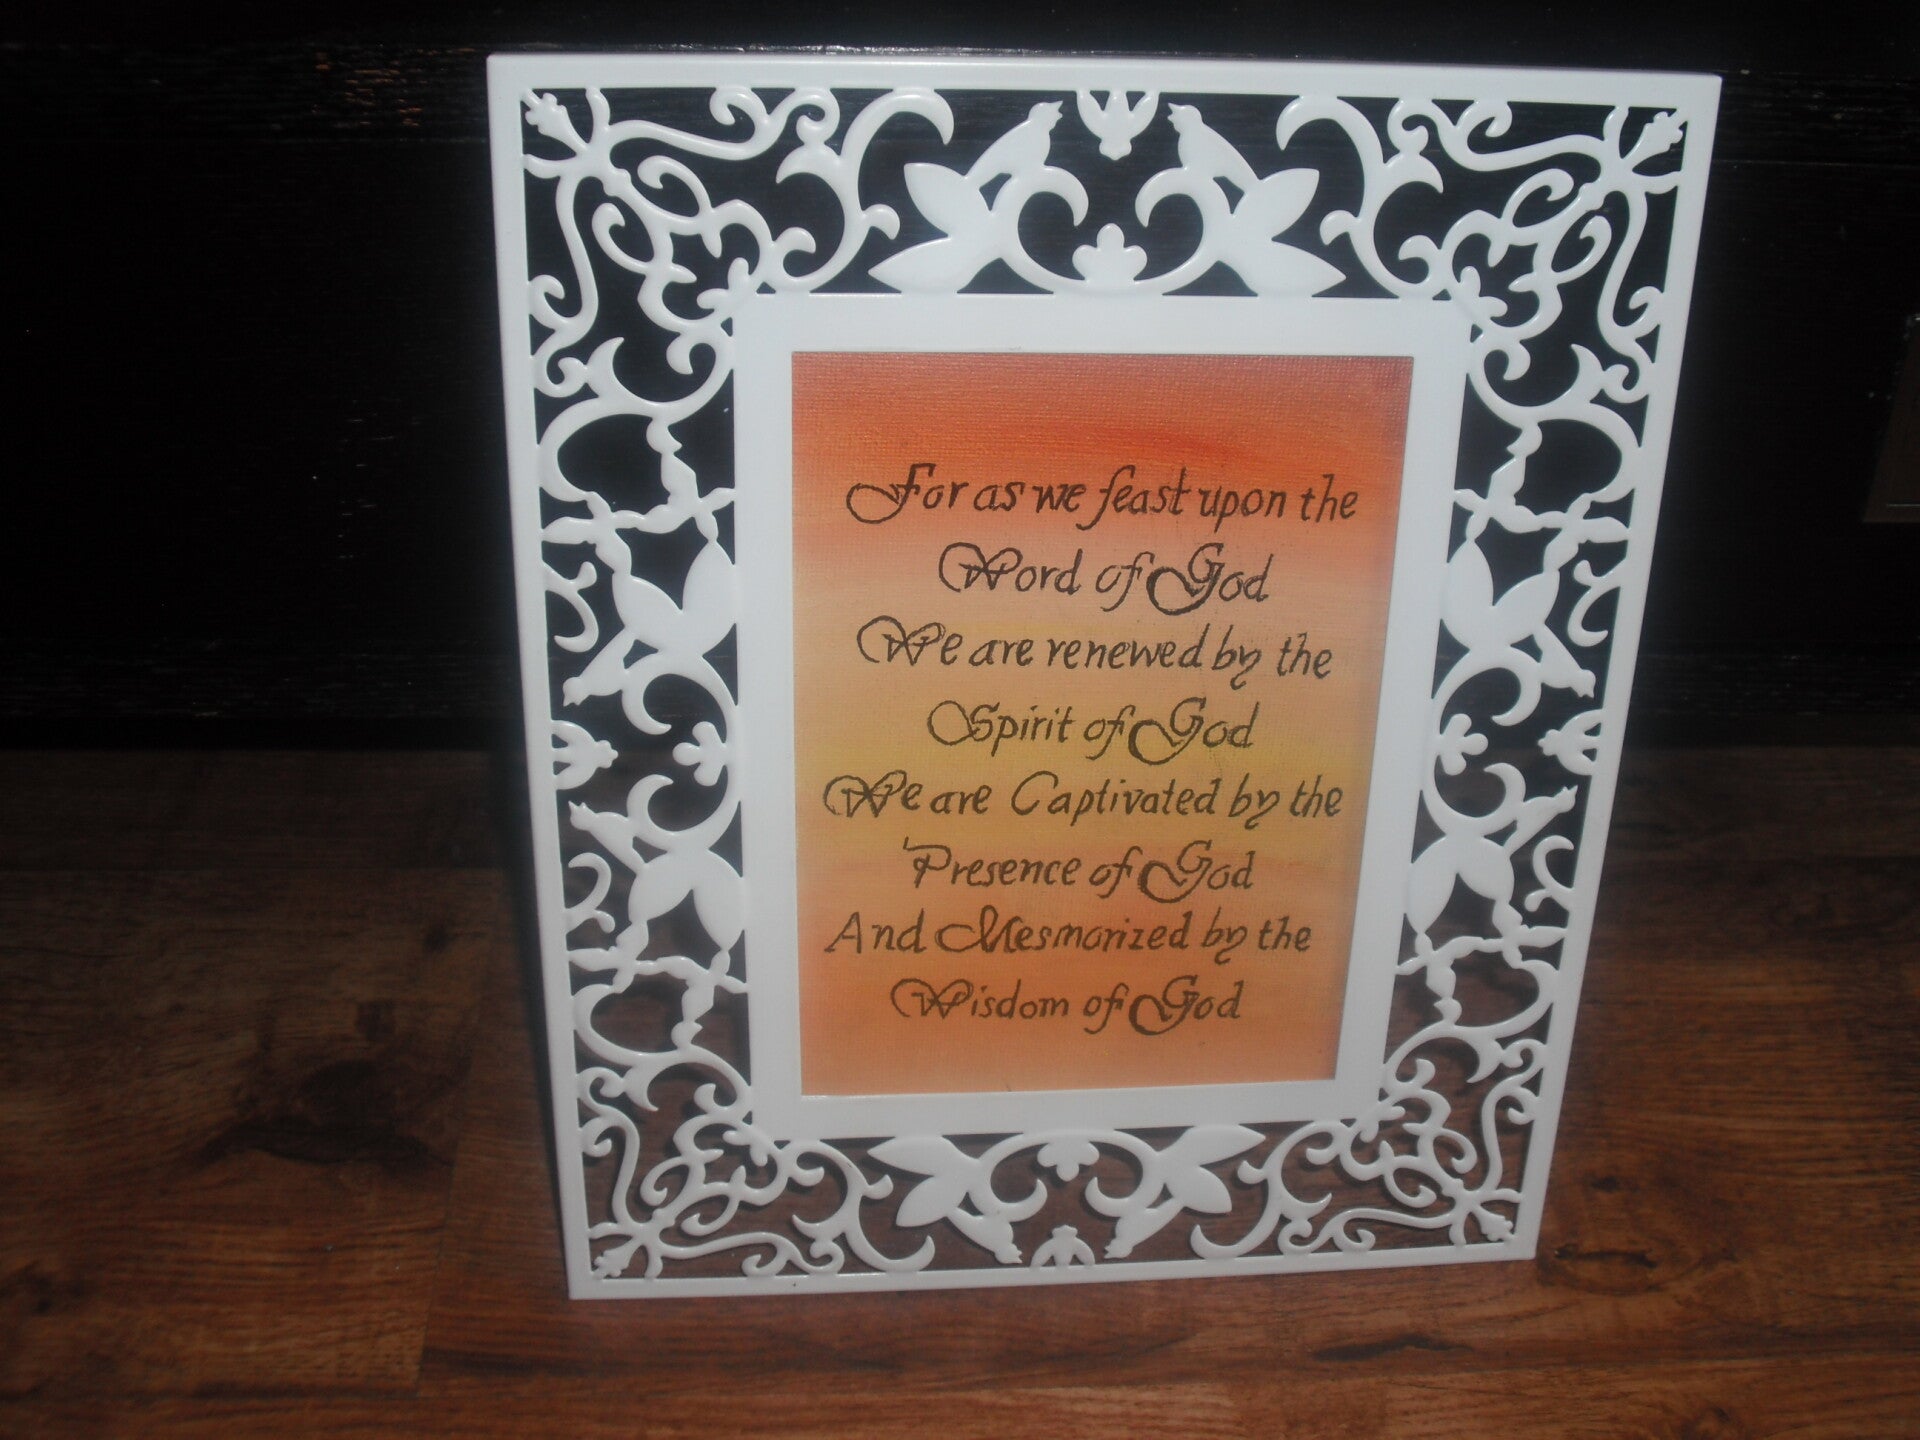 For as we feast upon the
Word of God
We are renewed by the
Spirit of God
We are Captivated by the
Presence of God
And Mesmorized by the
Wisdom of God